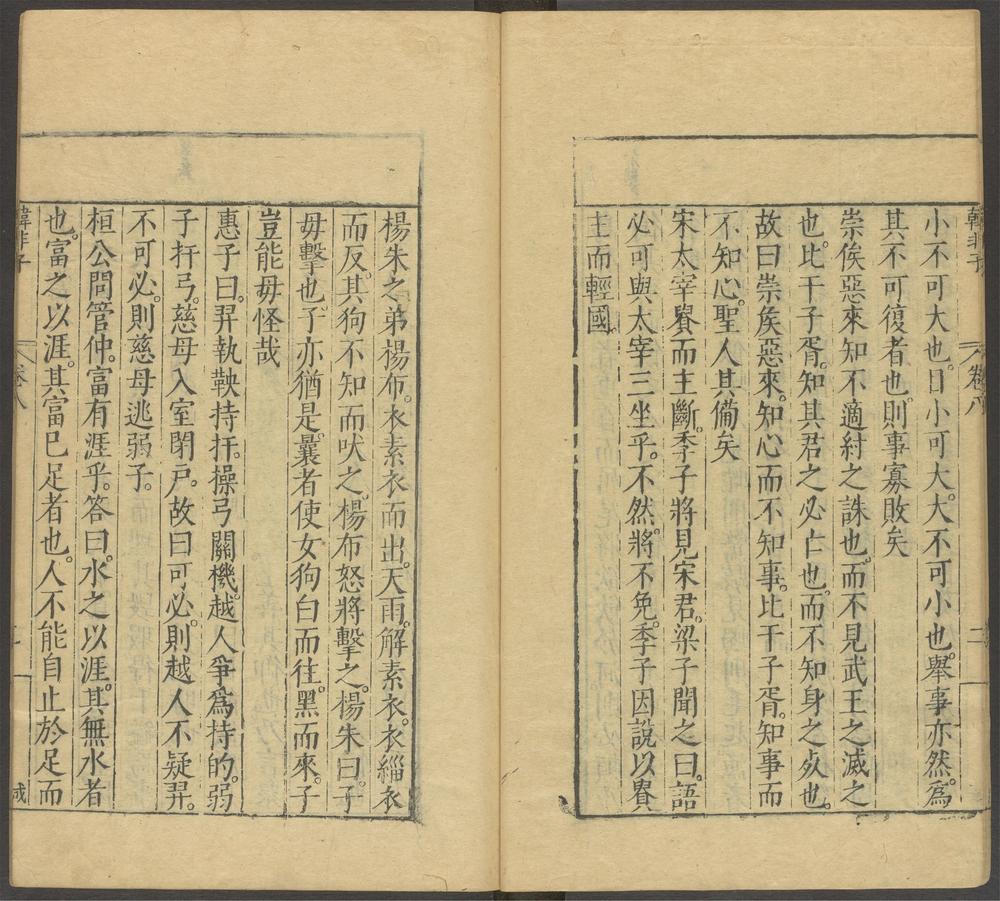 韓非子 卷八 二
小不可大也。目小可大。大不可小也。舉事亦然。爲
其不可復者也。則事寡敗矣
崇侯惡來知不適紂之誅也。而不見武王之滅之
也。比干子胥。知其君之必亡也。而不知身之死也。
故曰崇侯惡來。知心而不知事。比干子胥。知事而
不知心。聖人其備矣
宋太宰貴而主斷。季子將見宋君。梁子聞之曰。語
必可與太宰三坐乎。不然。將不免。季子因說以貴
主而輕國
楊朱之弟楊布。衣素衣而出。天雨。解素衣。衣緇衣
而反。其狗不知而吠之。楊布怒將擊之。楊朱曰。子
毋擊也。子亦猶是。曩者使女狗白而往。黑而來。子
豈能毋怪哉
惠子曰。羿執鞅持扞。操弓關機。越人爭爲持的。弱
子扞弓。慈母入室閉戶。故曰可必。則越人不疑羿。
不可必。則慈母逃弱子。
桓公問管仲。富有涯乎。答曰。水之以涯。其無水者
也。富之以涯。其富已足者也。人不能自止於足而
韓非子 卷八